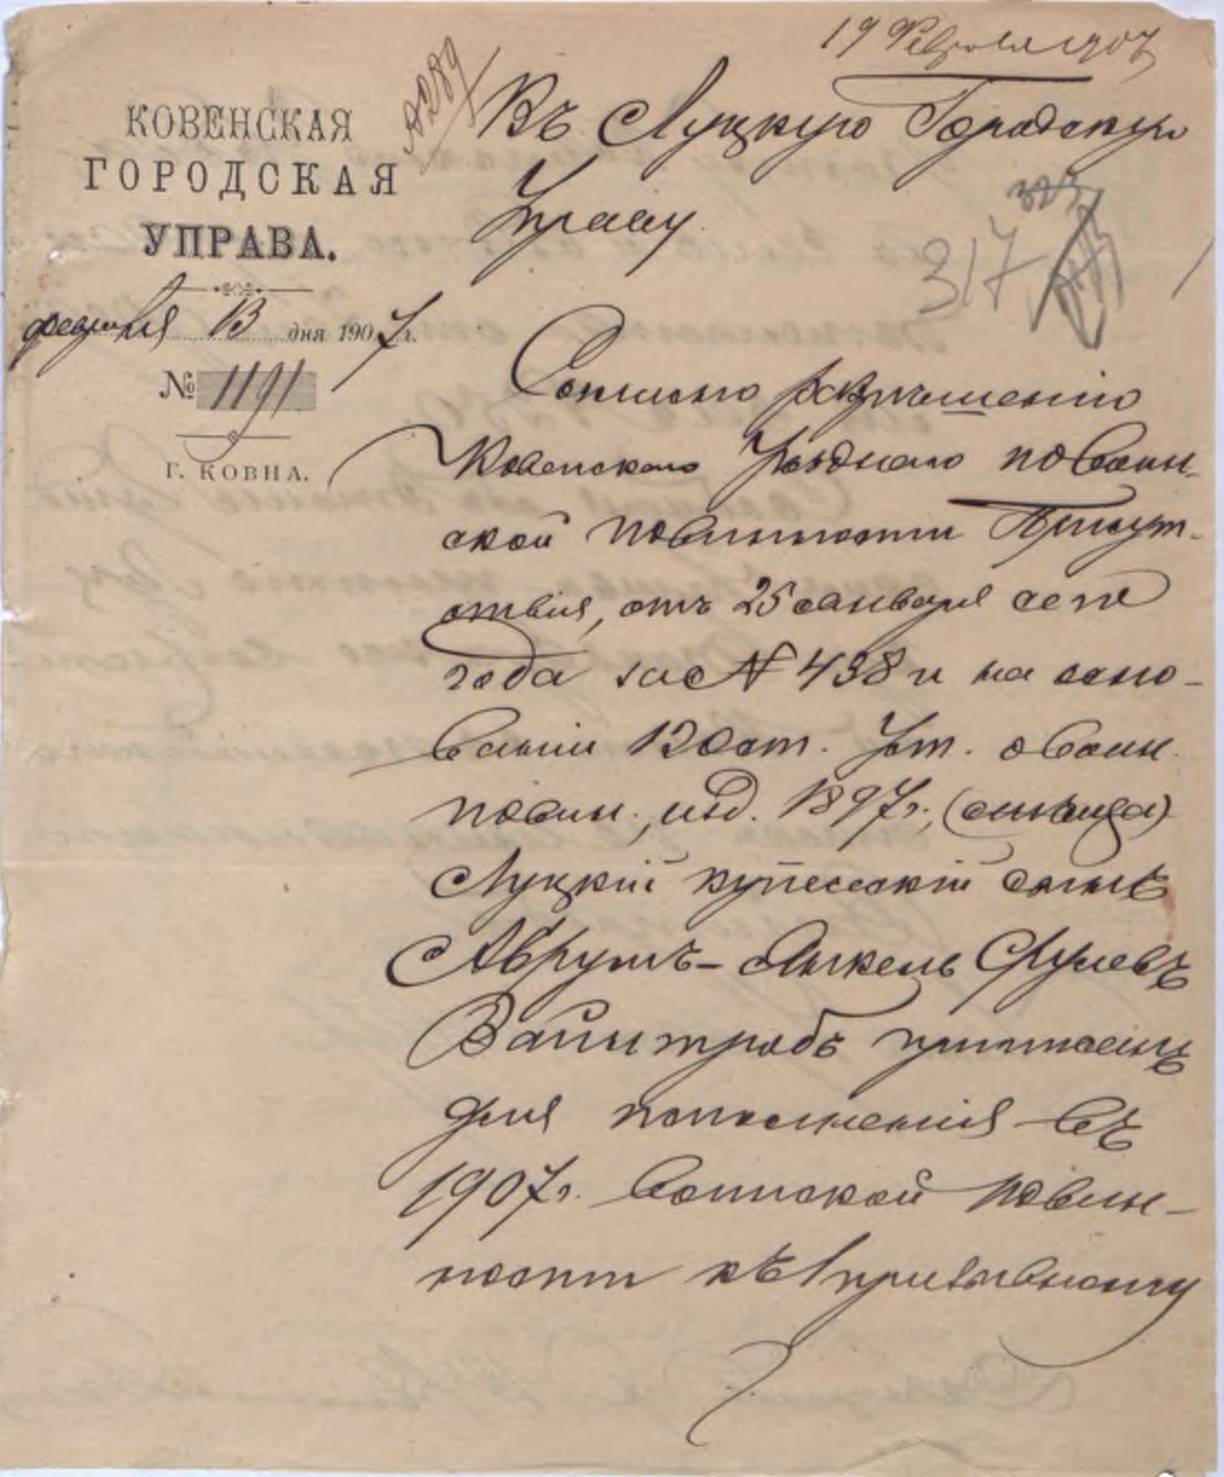 19 Февраля 1907
№ 289
КОВЕНСКАЯ
ГОРОДСКАЯ
УПРАВА.
февраля 13 дня 1907 г.
№ 1191
Г. КОВНА.
Въ Луцкую Городскую
Управу.
323
317
Согласно разрѣшенію
Ковенскаго Уѣзднаго по воин-
ской повинности Присут-
ствія, отъ 25 января сего
года за № 438 и на осно-
ваніи 120 ст. Уст. о воин.
повин., изд. 1897 г.,
Луцкій купеческій сынъ
Абрумъ-Янкель Сруlевъ
Вайнтрабъ приписанъ
для исполненія въ
1907 г. воинской повин-
ности къ призывному